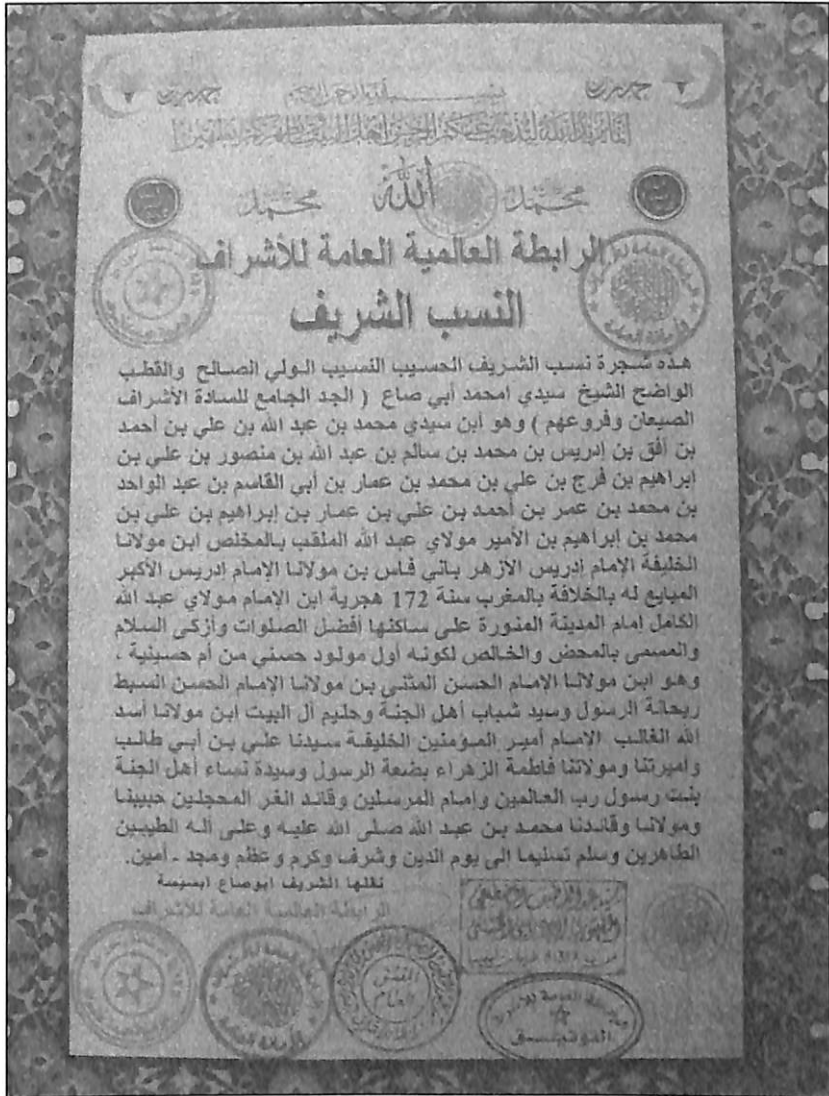 بسم الله الرحمن الرحيم
إنما يريد الله ليذهب عنكم الرجس أهل البيت ويطهركم تطهيرا
محمد الله محمد
الرابطة العالمية العامة للأشراف
النسب الشريف
هذه شجرة نسب الشريف الحسيب النسيب الولي الصالح والقطب
الواضح الشيخ سيدي امحمد أبي صاع ( الجد الجامع للسادة الأشراف
الصيعان وفروعهم ) وهو ابن سيدي محمد بن عبد الله بن علي بن أحمد
بن أفق بن إدريس بن محمد بن سالم بن عبد الله بن منصور بن علي بن
إبراهيم بن فرج بن علي بن محمد بن عمار بن أبي القاسم بن عبد الواحد
بن محمد بن عمر بن أحمد بن علي بن عمار بن إبراهيم بن علي بن
محمد بن إبراهيم بن الأمير مولاي عبد الله الملقب بالمخلص ابن مولانا
الخليفة الإمام إدريس الازهر باني فاس بن مولانا الإمام إدريس الأكبر
المبايع له بالخلافة بالمغرب سنة 172 هجرية ابن الإمام مولاي عبد الله
الكامل إمام المدينة المنورة على ساكنها أفضل الصلوات وأزكى السلام
والمسمى بالمحض والخالص لكونه أول مولود حسني من أم حسينية .
وهو ابن مولانا الإمام الحسن المثنى بن مولانا الإمام الحسن السبط
ريحانة الرسول وسيد شباب أهل الجنة وحليم آل البيت ابن مولانا أسد
الله الغالب الإمام أمير المؤمنين الخليفة سيدنا علي بن أبي طالب
واميرتنا ومولاتنا فاطمة الزهراء بضعة الرسول وسيدة نساء أهل الجنة
بنت رسول رب العالمين وإمام المرسلين وقائد الغر المحجلين حبيبنا
ومولانا وقائدنا محمد بن عبد الله صلى الله عليه وعلى أله الطيبين
الطاهرين وسلم تسليما الى يوم الدين وشرف وكرم وعظم ومجد . أمين.
نقلها الشريف ابوصاع ابسيسة
الرابطة العالمية العامة للأشراف
النقش العام